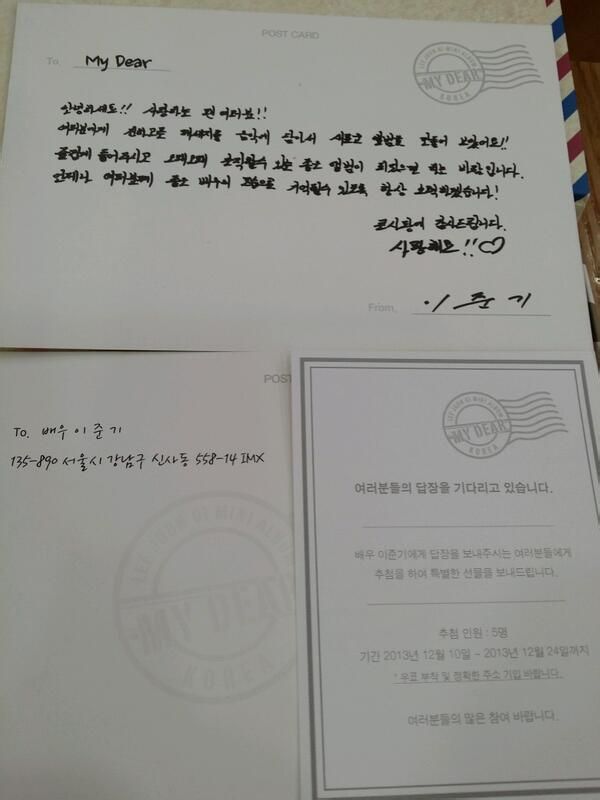 POST CARD
To. My Dear
LEE JOON GI MINI ALBUM
MY DEAR
KOREA
안녕하세요!! 사랑하는 팬 여러분!!
여러분에게 전하고픈 메세지를 음악에 담아서 새로운 앨범을 만들어 보았어요!!
즐겁게 들어주시고 오래오래 간직할수 있는 좋은 앨범이 되었으면 하는 바람입니다.
언제나 여러분께 좋은 배우의 모습으로 기억될수 있도록 항상 노력하겠습니다!
진심을 감사드립니다.
사랑해요!!♡
From. 이준기
POST
To. 배우 이준기
135-890 서울시 강남구 신사동 558-14 IMX
LEE JOON GI MINI ALBUM
MY DEAR
KOREA
LEE JOON GI MINI ALBUM
MY DEAR
KOREA
여러분들의 답장을 기다리고 있습니다.
배우 이준기에게 답장을 보내주시는 여러분들에게
추첨을 하여 특별한 선물을 보내드립니다.
추첨 인원 : 5명
기간 2013년 12월 10일 ~ 2013년 12월 24일까지
* 우표 부착 및 정확한 주소 기입 바랍니다.
여러분들의 많은 참여 바랍니다.